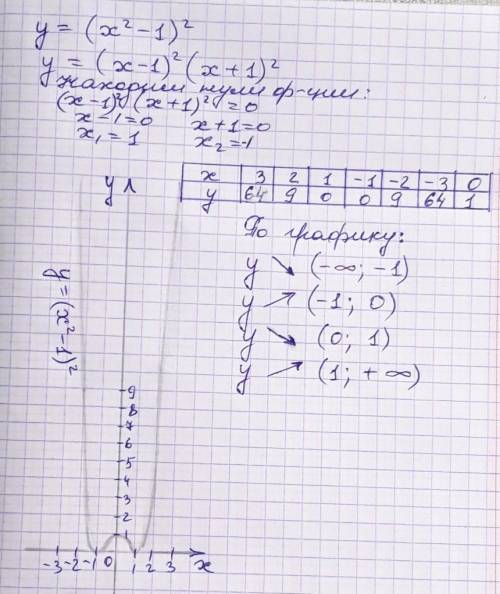 y = (x² - 1)²
y = (x-1)² (x+1)²
находим нули ф-ции:
(x-1)² (x+1)² = 0
x-1=0 x+1=0
x₁ = 1 x₂=-1
x 3 2 1 -1 -2 -3 0
y 64 9 0 0 9 64 1
По графику:
y ↘ (-∞; -1)
y ↗ (-1; 0)
y ↘ (0; 1)
y ↗ (1; +∞)
y
y = (x²-1)²
9
8
7
6
5
4
3
2
1
-3 -2 -1 0 1 2 3 x